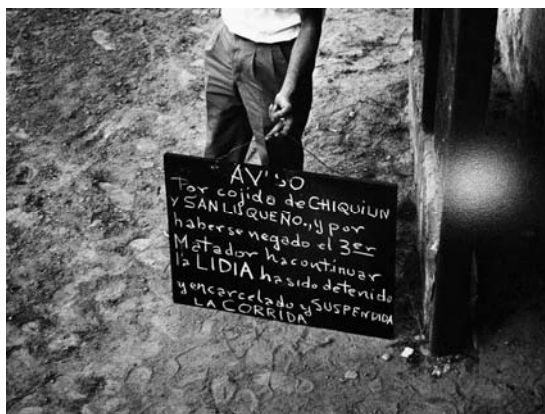 AVISO
Por cojida de CHIQUILIN
y SAN LUISQUEÑO., y por
haberse negado el 3er
Matador hacontinuar
la LIDIA ha sido detenido
y encarcelado y SUSPENDIDA
LA CORRIDA